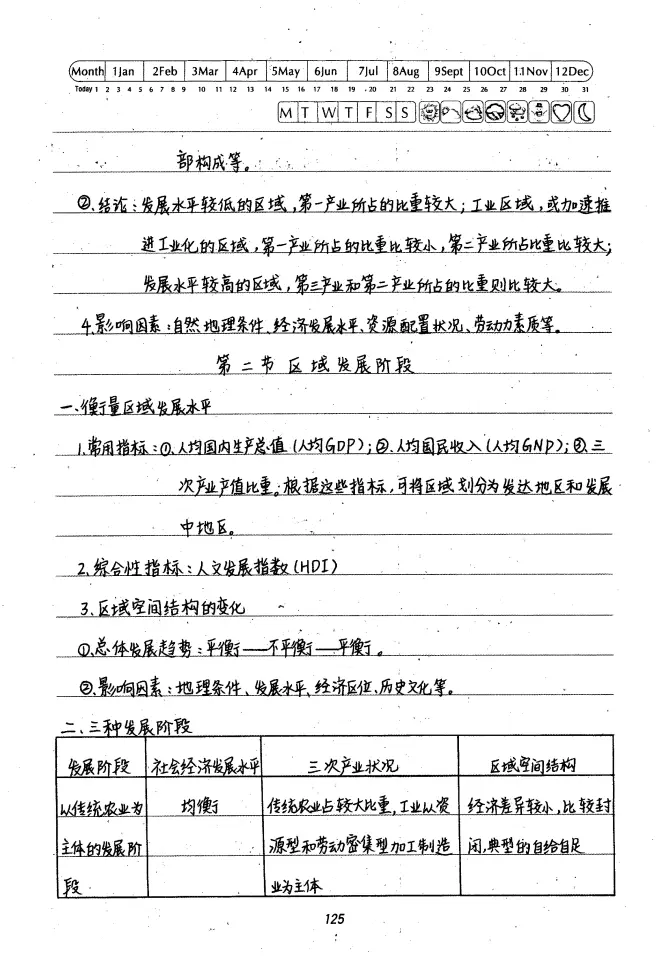 Month 1Jan 2Feb 3Mar 4Apr 5May 6Jun 7Jul 8Aug 9Sept 10Oct 11Nov 12Dec
Today 1 2 3 4 5 6 7 8 9 10 11 12 13 14 15 16 17 18 19 20 21 22 23 24 25 26 27 28 29 30 31
M T W T F S S
部构成等。
②.结论:发展水平较低的区域,第一产业所占的比重较大;工业区域,或加速推
进工业化的区域,第一产业所占的比重比较小,第二产业所占比重比较大;
发展水平较高的区域,第三产业和第二产业所占的比重则比较大。
4.影响因素:自然地理条件、经济发展水平、资源配置状况、劳动力素质等。
第二节 区域发展阶段
一、衡量区域发展水平
1.常用指标:①.人均国内生产总值(人均GDP);②.人均国民收入(人均GNP);③.三
次产业产值比重。根据这些指标,可将区域划分为发达地区和发展
中地区。
2.综合性指标:人文发展指数(HDI)
3.区域空间结构的变化
①.总体发展趋势:平衡——不平衡——平衡。
②.影响因素:地理条件、发展水平、经济区位、历史文化等。
二、三种发展阶段
发展阶段 社会经济发展水平 三次产业状况 区域空间结构
以传统农业为 均衡 传统农业占较大比重,工业以资 经济差异较小,比较封
主体的发展阶 源型和劳动密集型加工制造 闭,典型的自给自足
段 业为主体
125